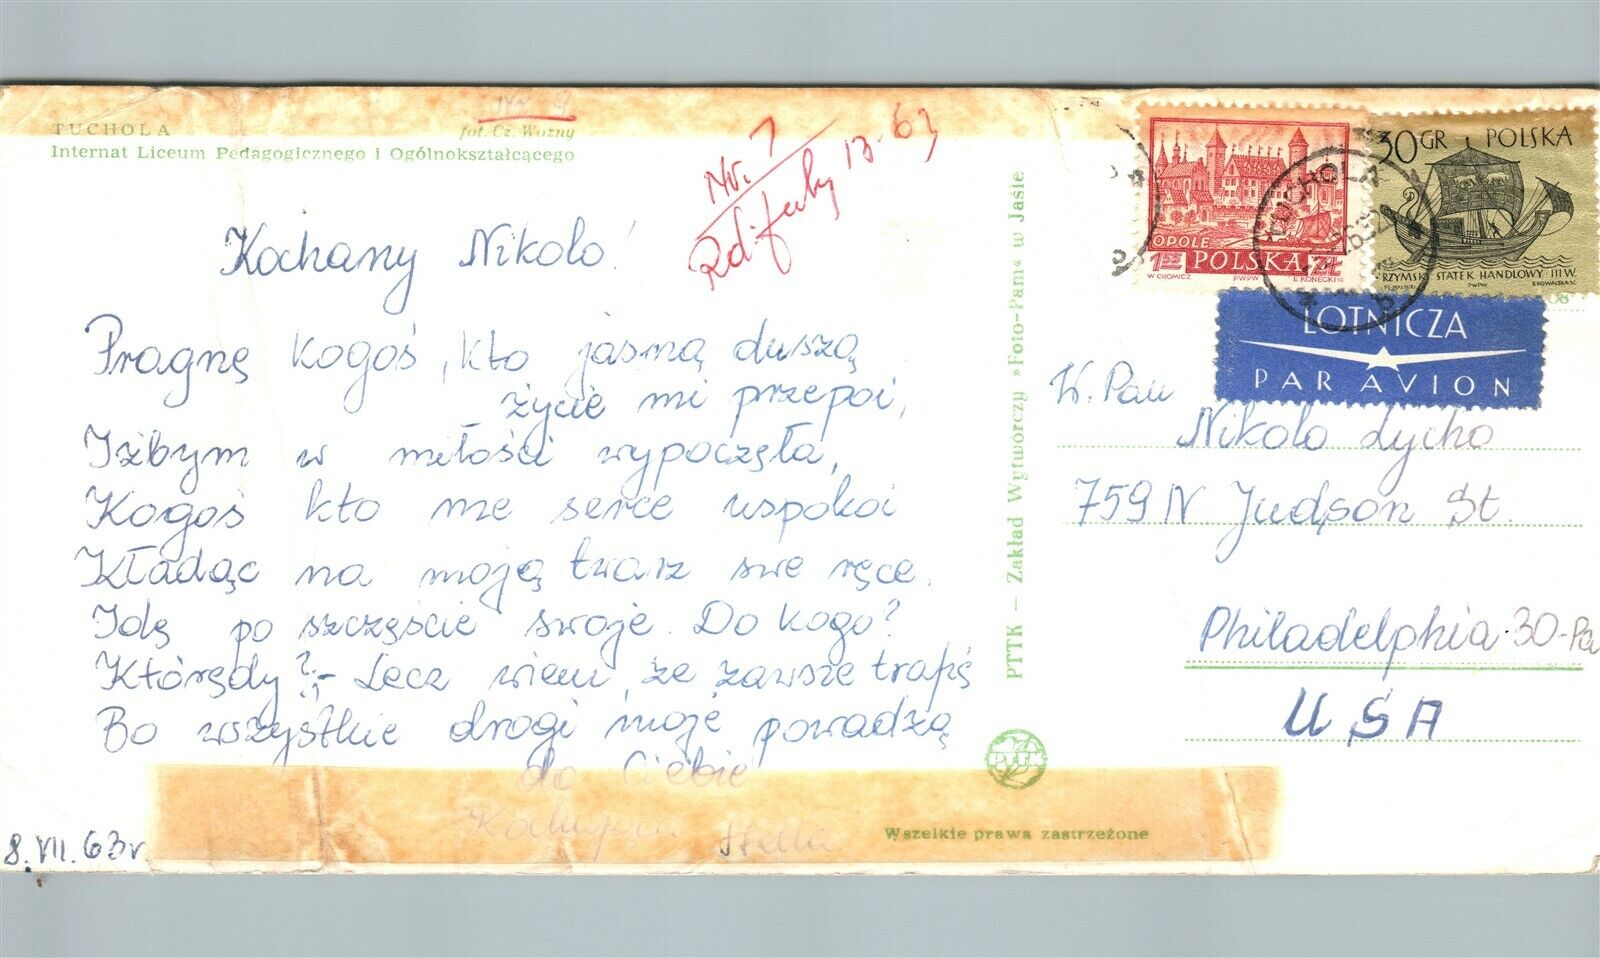 TUCHOLA
fot. Cz. Woźny
Internat Liceum Pedagogicznego i Ogólnokształcącego
Nr. 7
13-63
Kochany Nikolo!
Pragnę kogoś, kto jasną duszą
życie mi przepoi,
Iżbym w miłości wypoczęła,
Kogoś kto me serce uspokoi
Kładąc na moją twarz swe ręce.
Idę po szczęście swoje. Do kogo?
Którędy? - Lecz wiem, że zawsze trafię
Bo wszystkie drogi moje powadzą
do Ciebie
Kochająca Stella
8.VII.63r.
Wszelkie prawa zastrzeżone
PTTK — Zakład Wytwórczy »Foto-Pam« w Jaśle
PTTK
OPOLE
POLSKA
W. CHOMICZ PWPW
30 GR POLSKA
RZYMSKI STATEK HANDLOWY III W.
PWPW
TUCHOLA
LOTNICZA
PAR AVION
W. Pan
Nikolo Lycho
759 N Judson St.
Philadelphia 30-Pa
USA